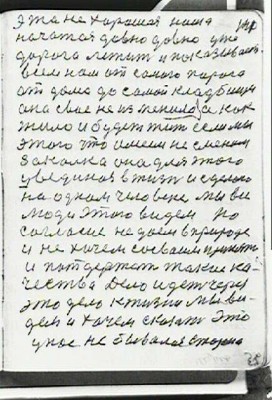 эта не хорошая наша
началая довно довно уже
дорога лежит и показывает
всем нам от самого порога
от дома до самой кладбищи
она свое не изменила а как
жило и будет жить если мы
этого что имеем не сменим
Закалка она для этого
увединов в жизни сделано
на одном человеке мы ви
люди этого видем но
согласие не даем в природе
и не хочем своими принять
и потдержать такие ка-
чества Дело идет через
это дело к жизни мы ви-
дем и хочем сказать Это
у нас не бывалая сторона